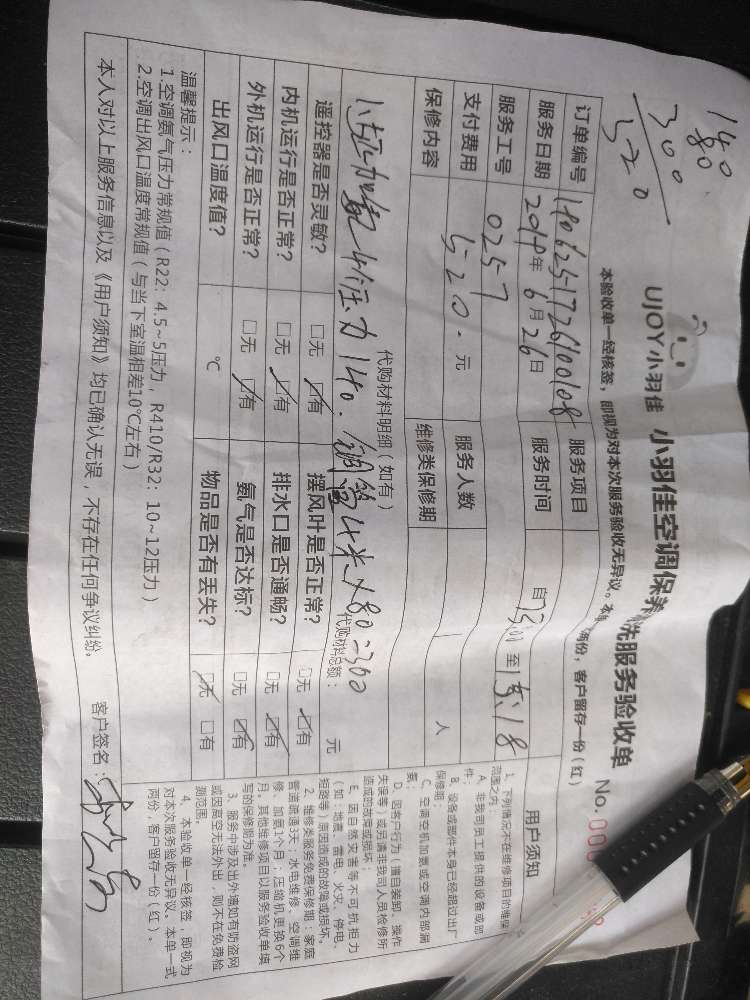 140
80
300
520
UJOY小羽佳 小羽佳空调保养 洗服务验收单 No.
本验收单一经核签，即视为对本次服务验收无异议。本单 两份，客户留存一份(红)
订单编号 服务项目
服务日期 2019年6月26日 服务时间 自13:01至15:18
服务工号 0257
支付费用 520.元 服务人数 人
保修内容 维修类保修期
代购材料明细（如有）
140. 铜管 4米×80=300 代购材料总额： 元
遥控器是否灵敏？ □无 ☑有 摆风叶是否正常？ □无 ☑有
内机运行是否正常？ □无 ☑有 排水口是否通畅？ □无 ☑有
外机运行是否正常？ □无 ☑有 氨气是否达标？ □无 ☑有
出风口温度值？ ℃ 物品是否有丢失？ ☑无 □有
温馨提示：
1.空调氨气压力常规值（R22: 4.5~5压力，R410/R32: 10~12压力）
2.空调出风口温度常规值（与当下室温相差10℃左右）
本人对以上服务信息以及《用户须知》均已确认无误，不存在任何争议纠纷。 客户签名：
用户须知
1、下列情况不在维修项目的维保
范围之内
A、非我司员工提供的设备或部
件；
B、设备或部件本身已经超过出厂
保修期；
C、空调空机加氨或空调内部漏
氨；
D、因客户行为（擅自装卸、操作
失误等）或另请非我司人员检修所
造成的故障或损坏；
E、因自然灾害等不可抗拒力
（如：地震、雷电、火灾、停电、
短路等）原因造成的故障或损坏。
2、维修类服务免费保修期：家庭
管道疏通3天，水电维修、空调维
修、加氨1个月；压缩机更换6个
月。其他维修项目以服务验收单填
写的保修期为准。
3、服务中涉及出外墙如有防盗网
或因真空无法外出，则不在免费检
测范围。
4、本验收单一经核签，即视为
对本次服务验收无异议。本单一式
两份，客户留存一份（红）。